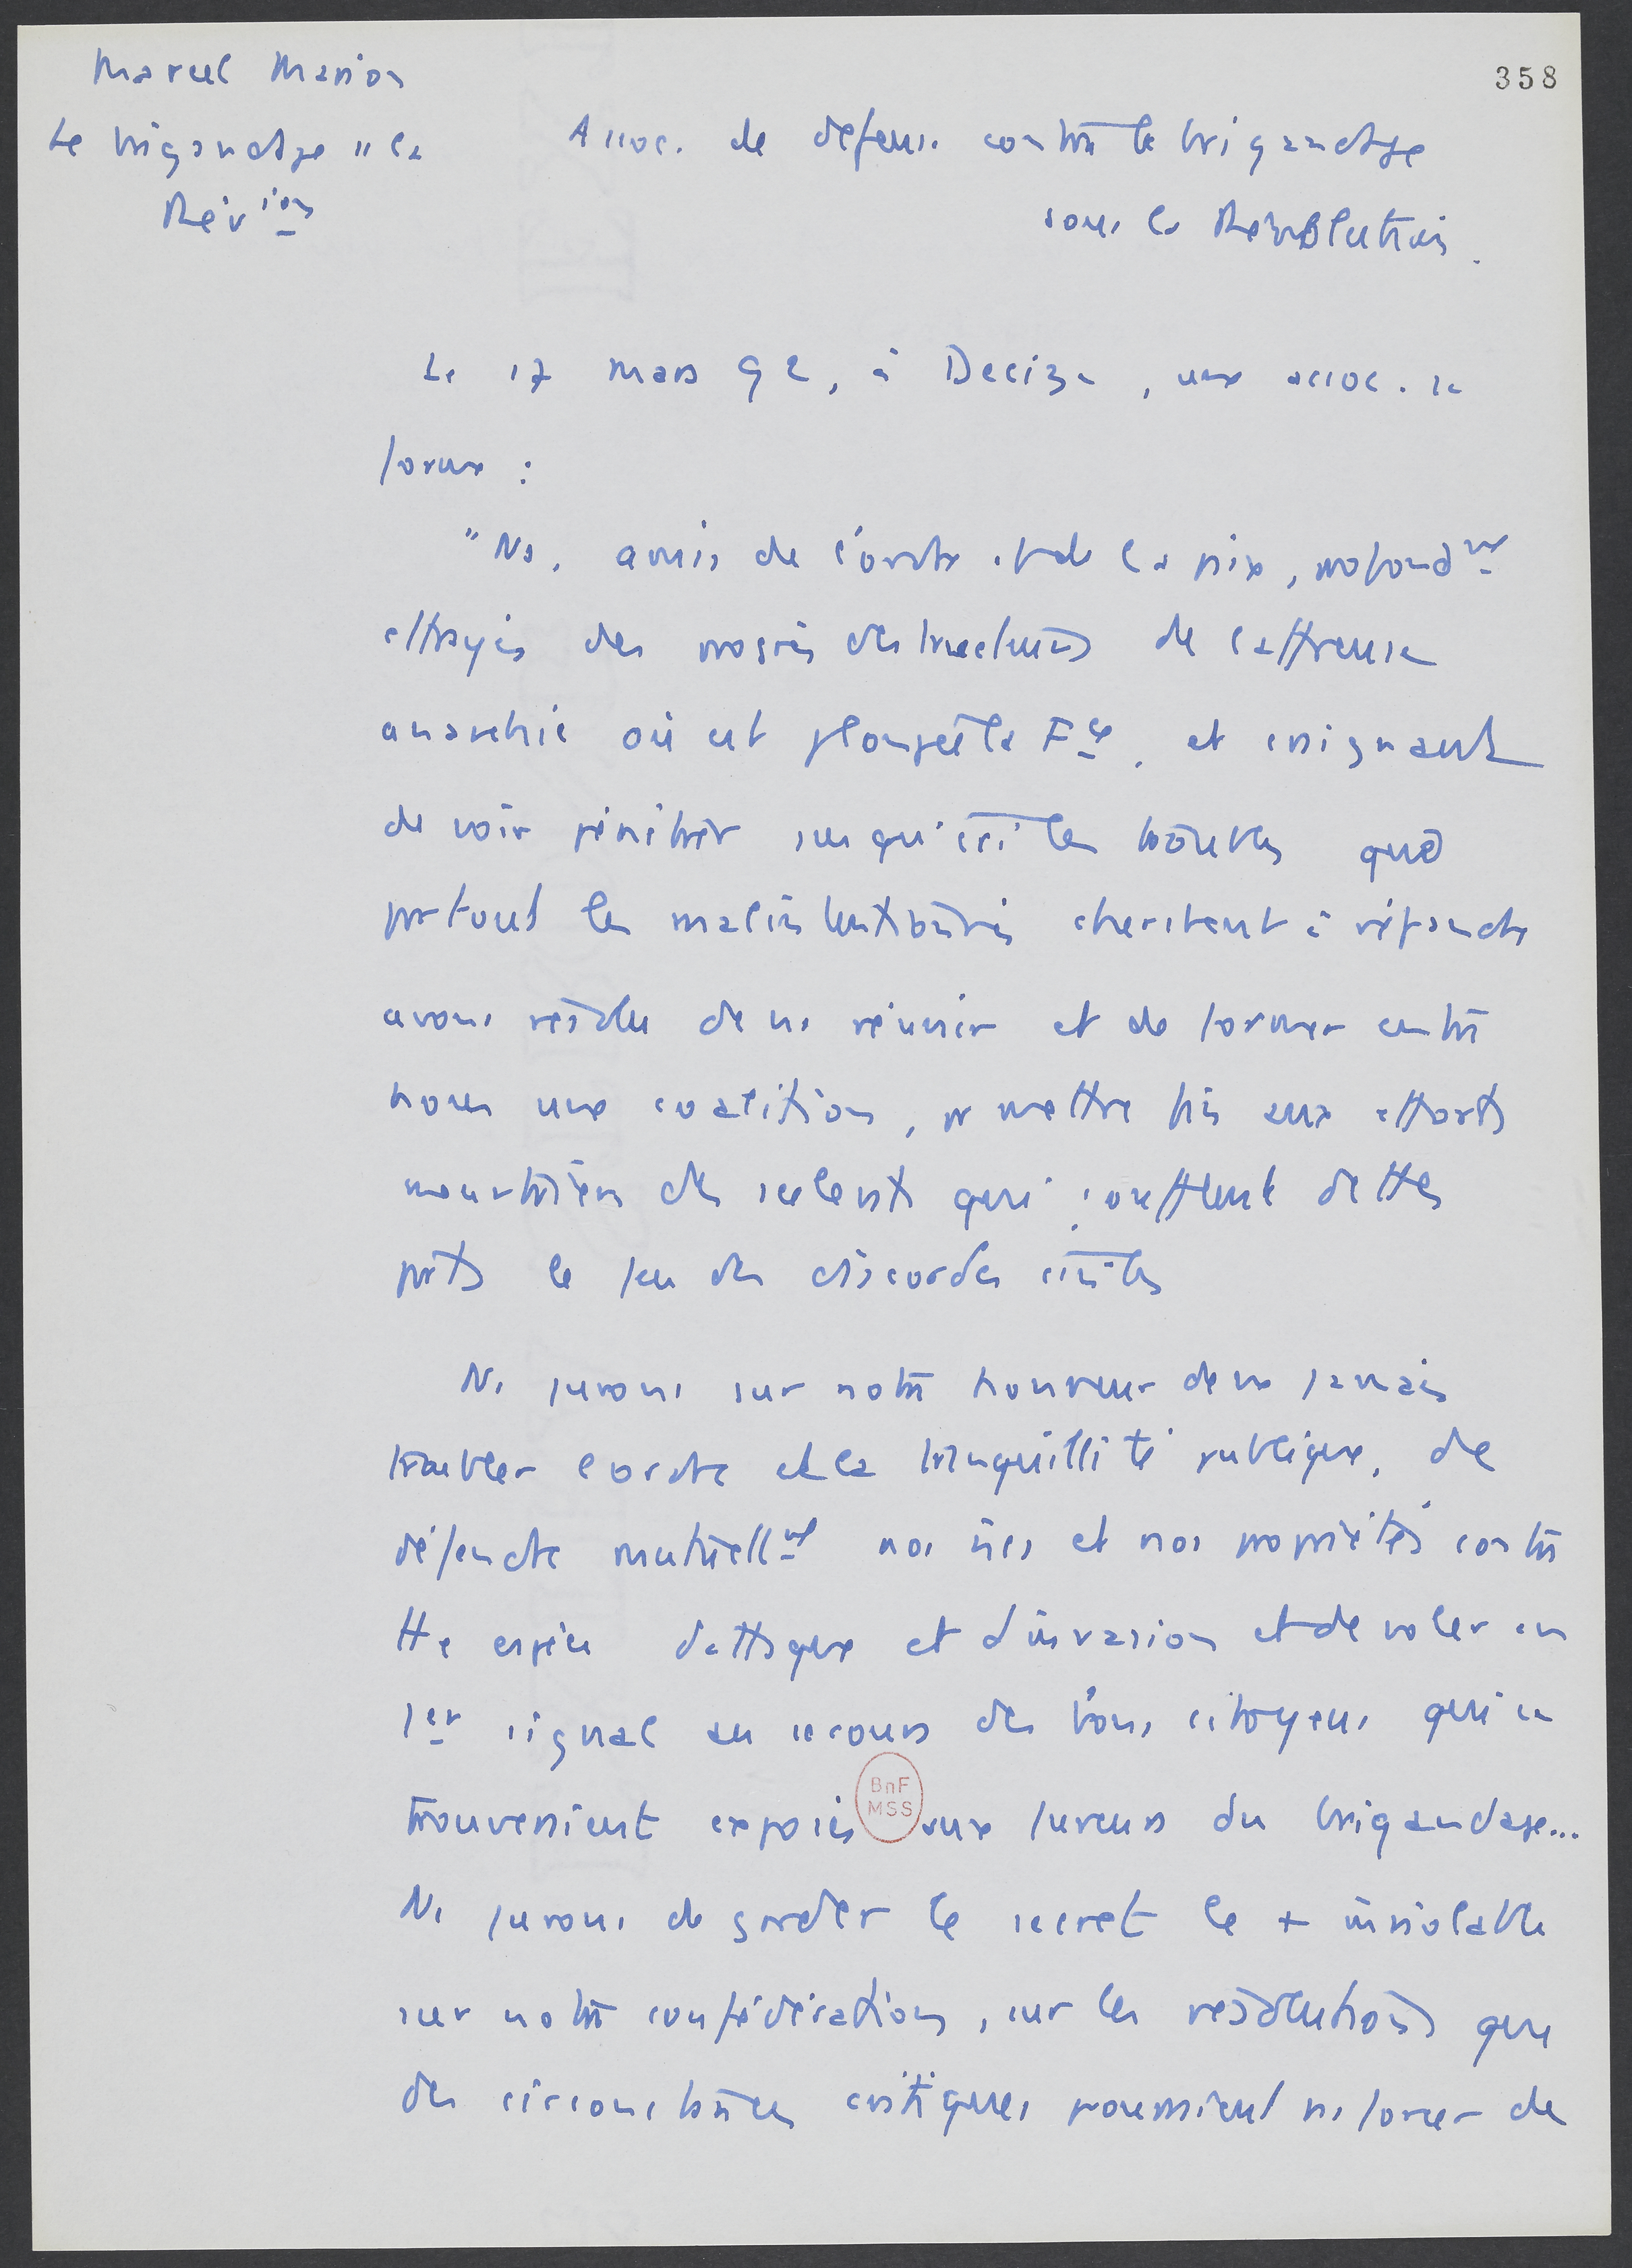 358
Marcel Marion
Le brigandage " la
Rév ion
Assoc. de défense contre le brigandage
sous la Révolution.
Le 17 mars 92, à Decize, une assoc. se
forme :
"Ns, amis de l'ordre et de la paix, profondmt
effrayés des progrès destructeurs de l'affreuse
anarchie où est plongée la Fce, et craignant
de voir pénétrer jusqu'ici les troubles que
partout les malintentionnés cherchent à répandre
avons résolu de ns réunir et de former entre
nous une coalition, pr mettre fin aux efforts
meurtriers des scélérats qui soufflent de ttes
parts le feu des discordes civiles
Ns jurons sur notre honneur de ne jamais
troubler l'ordre et la tranquillité publique, de
défendre mutuellmt nos vies et nos propriétés contre
tte espèce d'attaque et d'invasion et de voler au
1er signal au secours des bons citoyens qui se
trouveraient exposés aux fureurs du brigandage...
BnF
MSS
Ns jurons de garder le secret le + inviolable
sur notre confédération, sur les résolutions que
des circonstances critiques pourraient ns forcer de